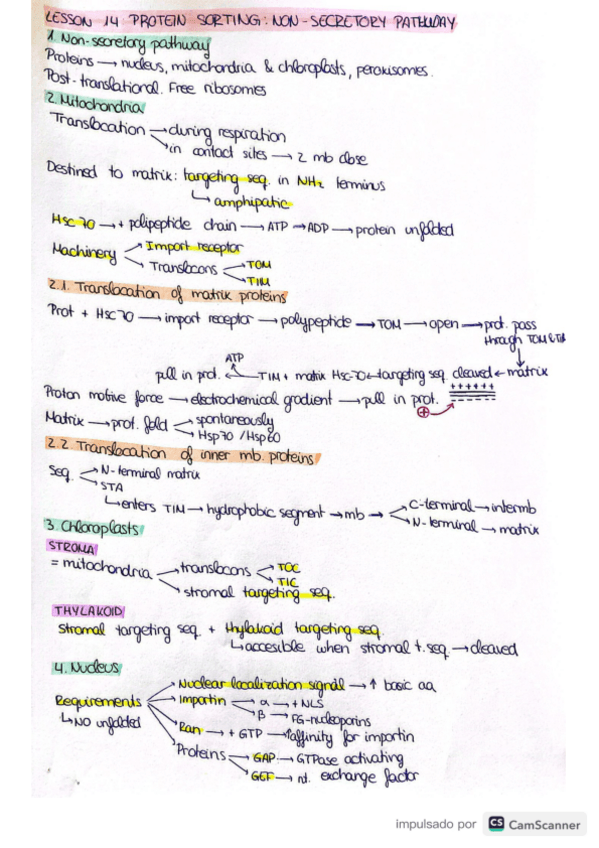 LESSON 14 PROTEIN SORTING: NON-SECRETORY PATHWAY
1. Non-secretory pathway
Proteins → nucleus, mitochondria & chloroplasts, peroxisomes.
Post-translational. Free ribosomes
2. Mitochondria
Translocation → during respiration
→ in contact sites → 2 mb close
Destined to matrix: targeting seq. in NH2 terminus
↳ amphipatic
Hsc 70 → + polipeptide chain → ATP → ADP → protein unfolded
Machinery → Import receptor
→ Translocons → TOM
→ TIM
2.1. Translocation of matrix proteins
Prot + Hsc70 → import receptor → polypeptide → TOM → open → prot. pass
through TOM & TIM
ATP
pull in prot. ← TIM + matrix Hsc70 ← targeting seq. cleaved ← matrix
++++++
Proton motive force → electrochemical gradient → pull in prot.
------
+
Matrix → prot. fold → spontaneously
→ Hsp70 / Hsp60
2.2. Translocation of inner mb. proteins
Seq. → N-terminal matrix
→ STA
↳ enters TIM → hydrophobic segment → mb → C-terminal → intermb
→ N-terminal → matrix
3. Chloroplasts
STROMA
= mitochondria → translocons → TOC
→ TIC
→ stromal targeting seq.
THYLAKOID
Stromal targeting seq. + thylakoid targeting seq.
↳ accesible when stromal t. seq. → cleaved
4. Nucleus
Requirements → Nuclear localization signal → ↑ basic aa
→ Importin → α → + NLS
→ β → FG-nucleoporins
↳ NO unfolded
→ Ran → + GTP → ↑affinity for importin
→ Proteins → GAP → GTPase activating
→ GEF → nt. exchange factor
impulsado por CS CamScanner